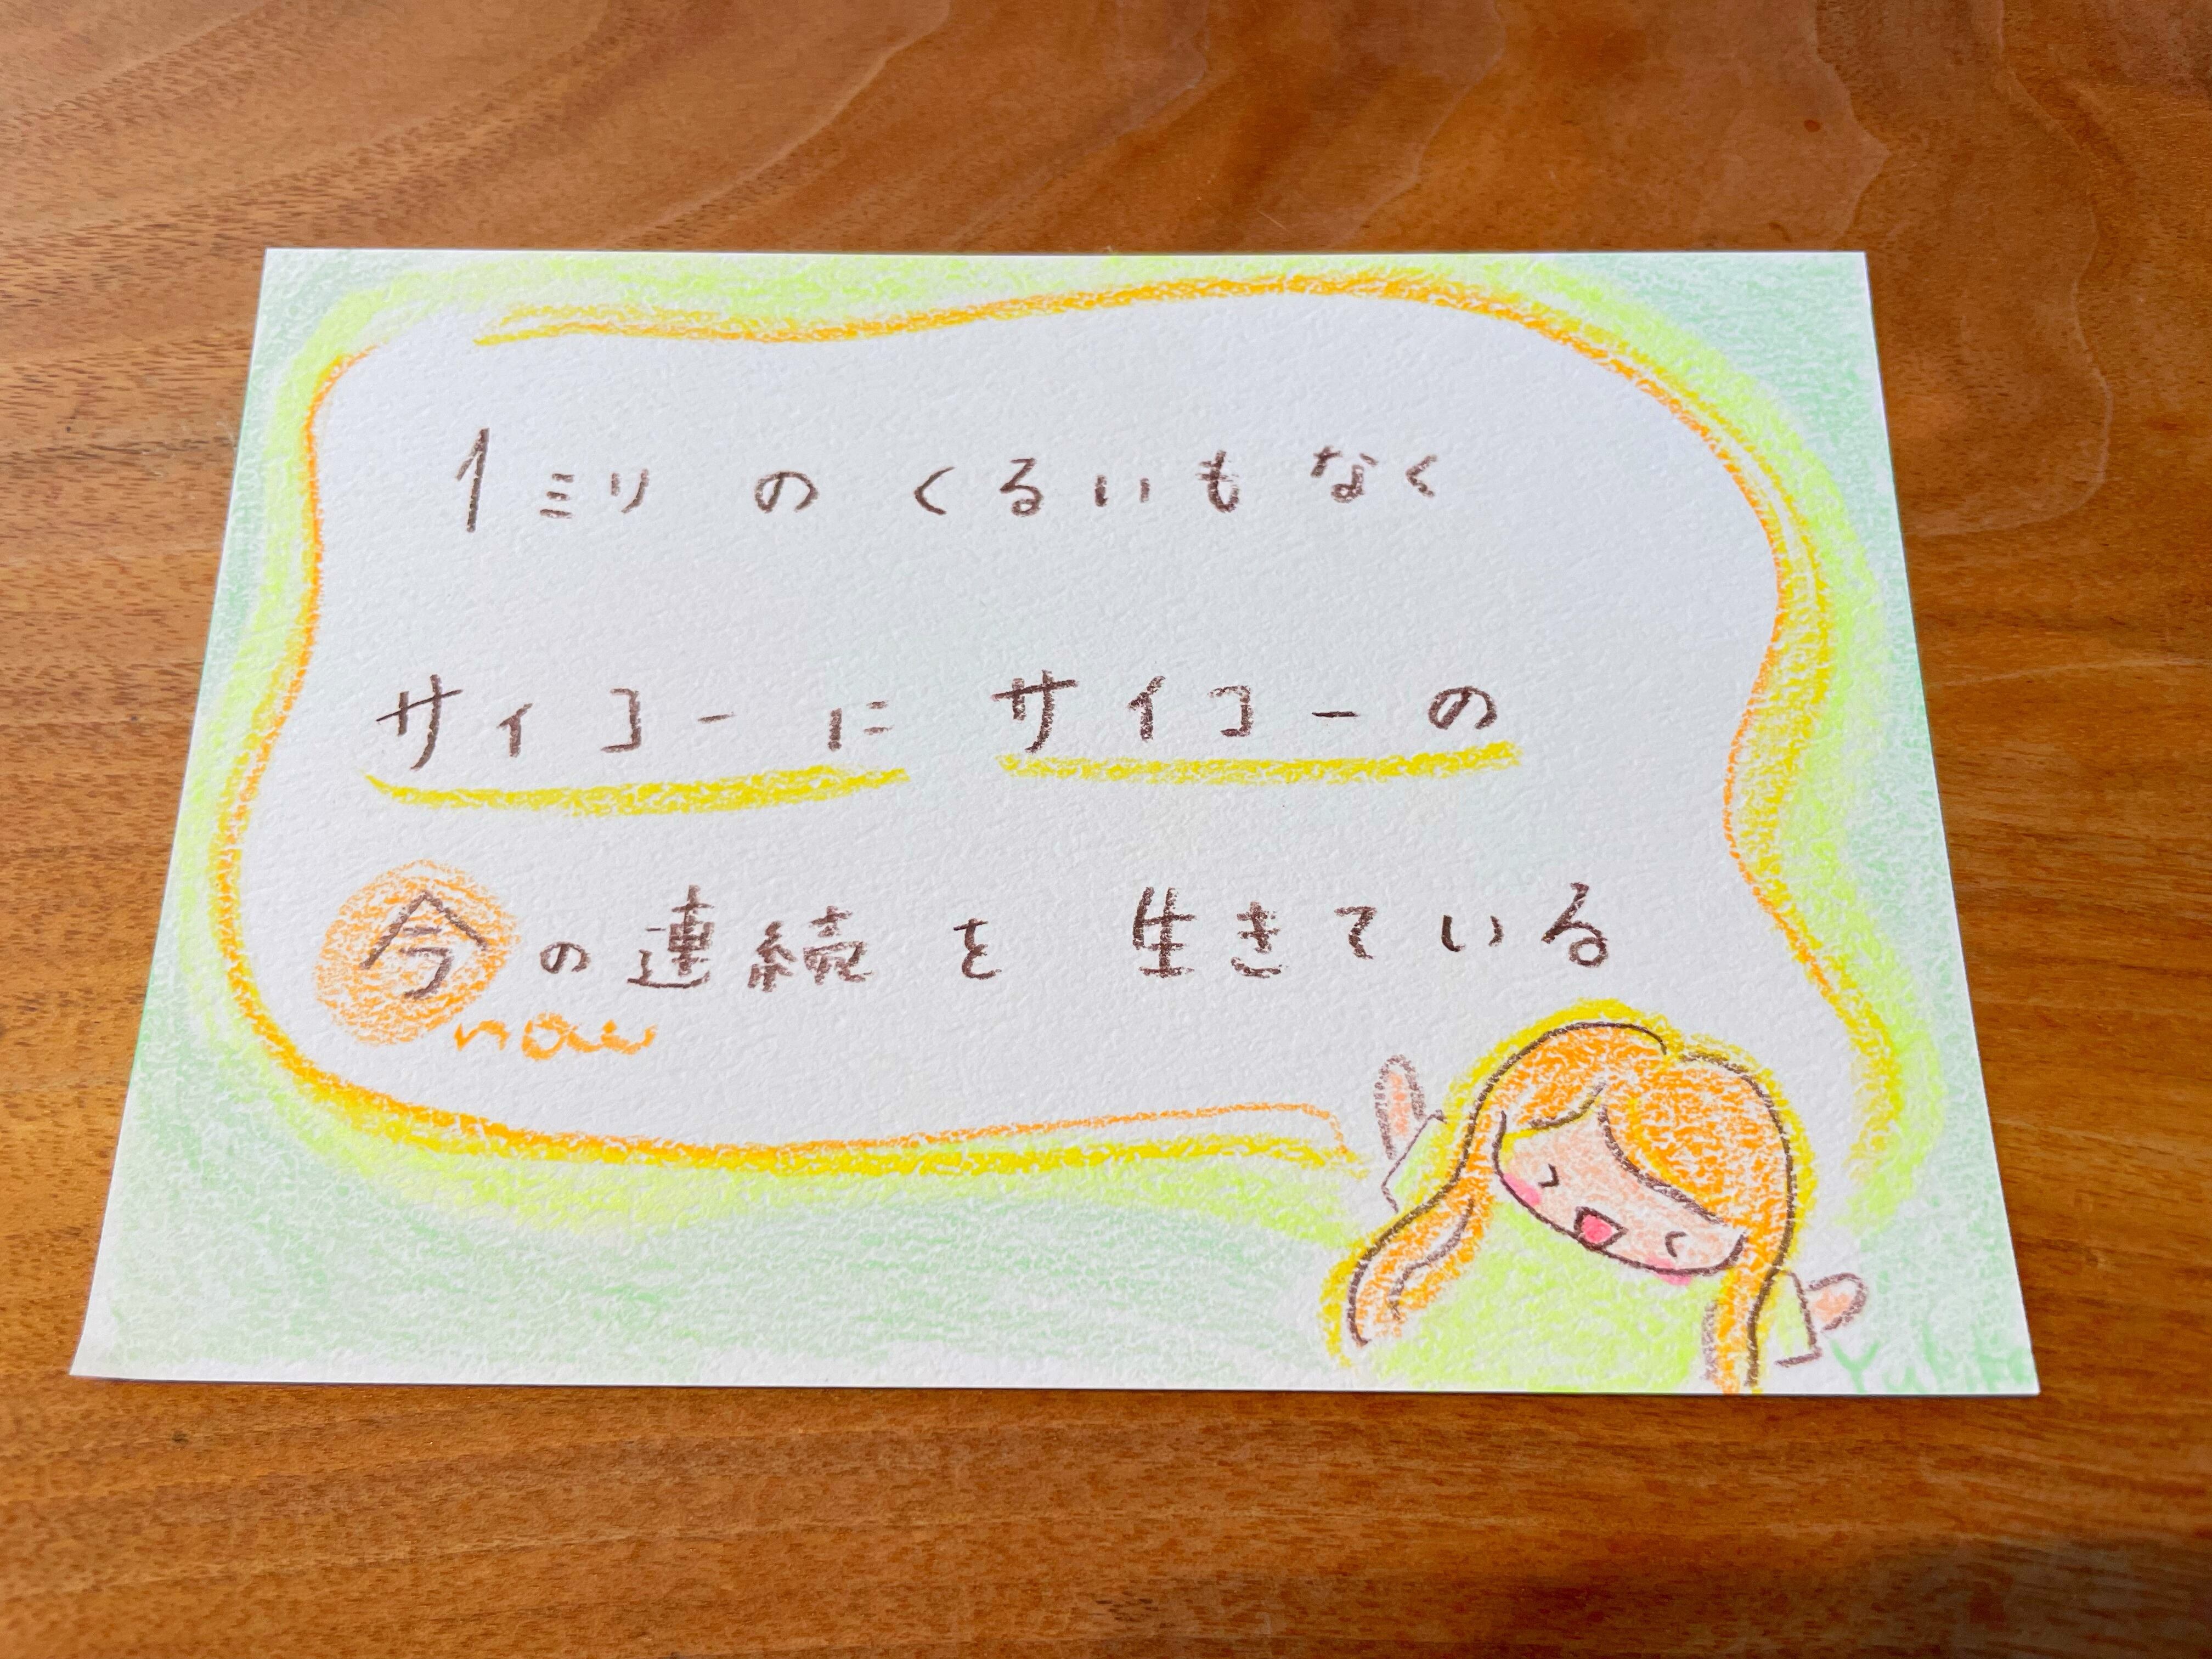 1ミリのくるいもなく
サイコーに サイコーの
今の連続を 生きている
now